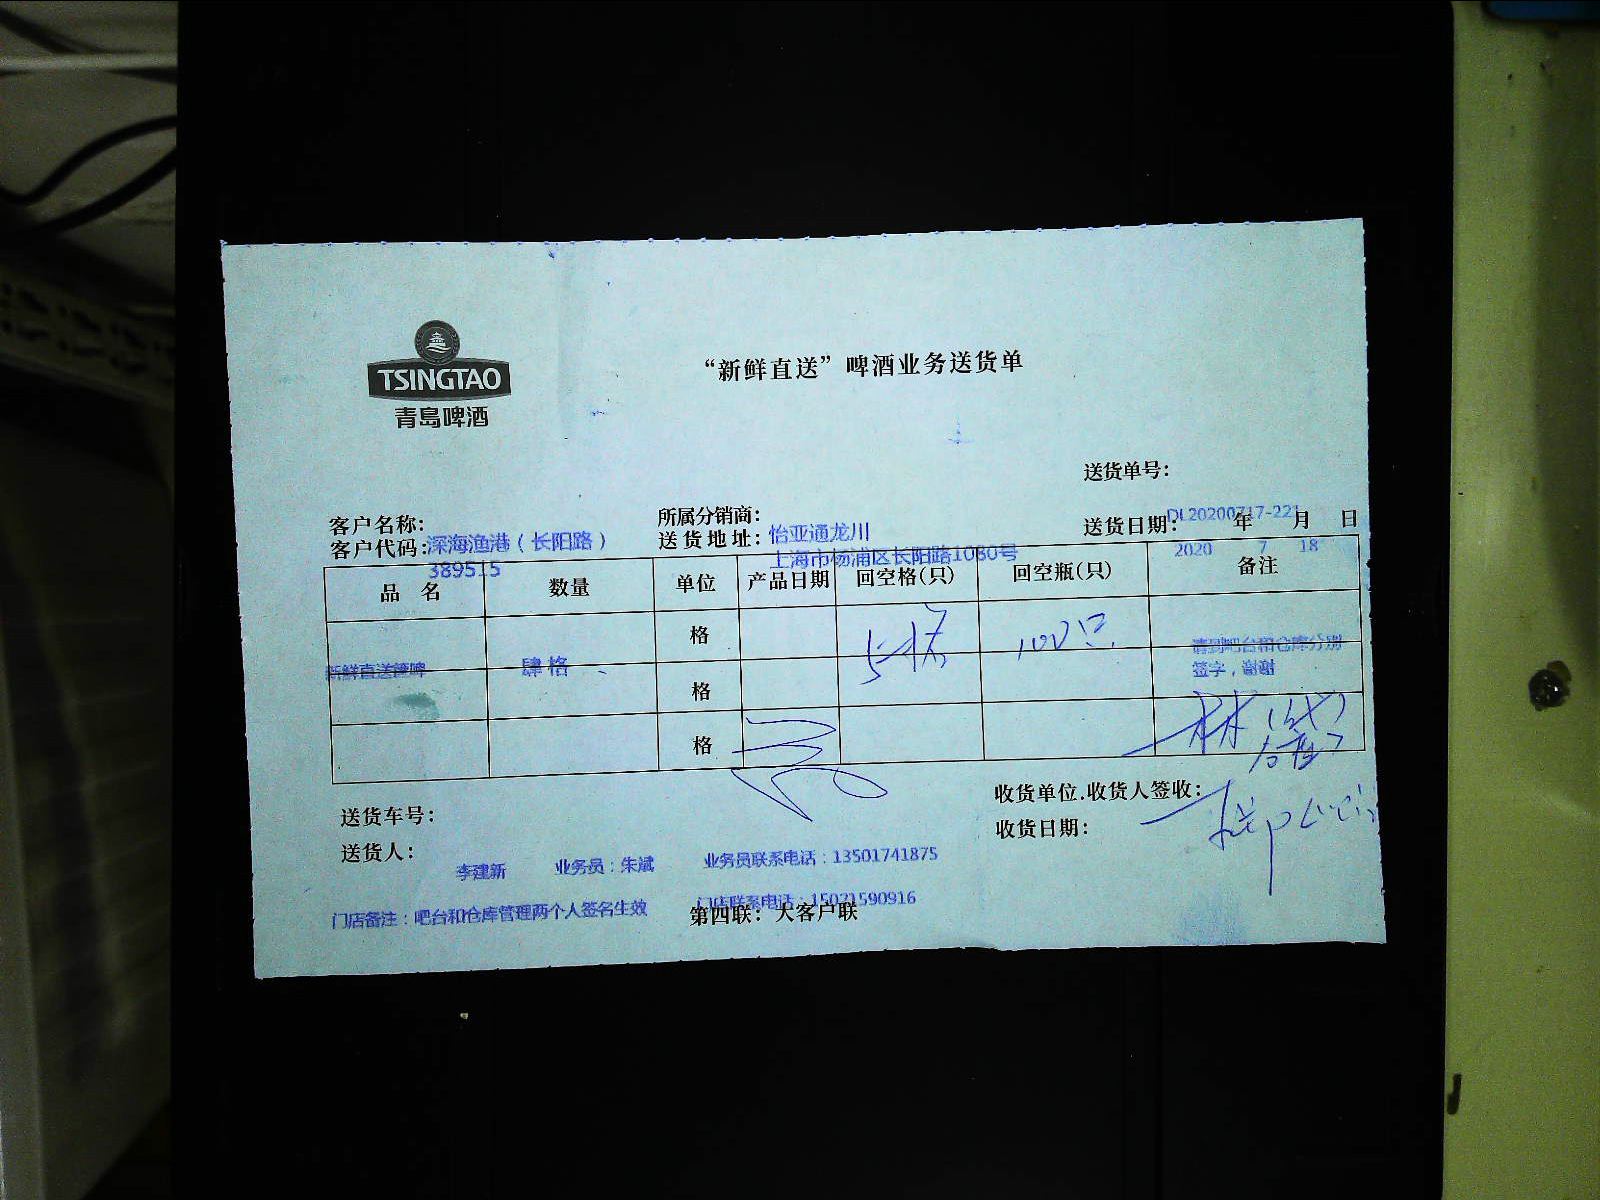 TSINGTAO
青島啤酒
“新鲜直送”啤酒业务送货单
送货单号：
DL20200717-221
客户名称：
深海渔港（长阳路）
所属分销商：
怡亚通龙川
送货日期： 年 月 日
2020 7 18
客户代码：
389515
送货地址：
上海市杨浦区长阳路1080号
品 名 数量 单位 产品日期 回空格(只) 回空瓶(只) 备注
格 5格 100只
新鲜直送篦啤 肆格 请到吧台和仓库分别
签字，谢谢
格
格
林
送货车号：
收货单位.收货人签收：
送货人：
收货日期：
李建新 业务员：朱斌 业务员联系电话：13501741875
门店备注：吧台和仓库管理两个人签名生效 门店联系电话：15021590916
第四联：大客户联